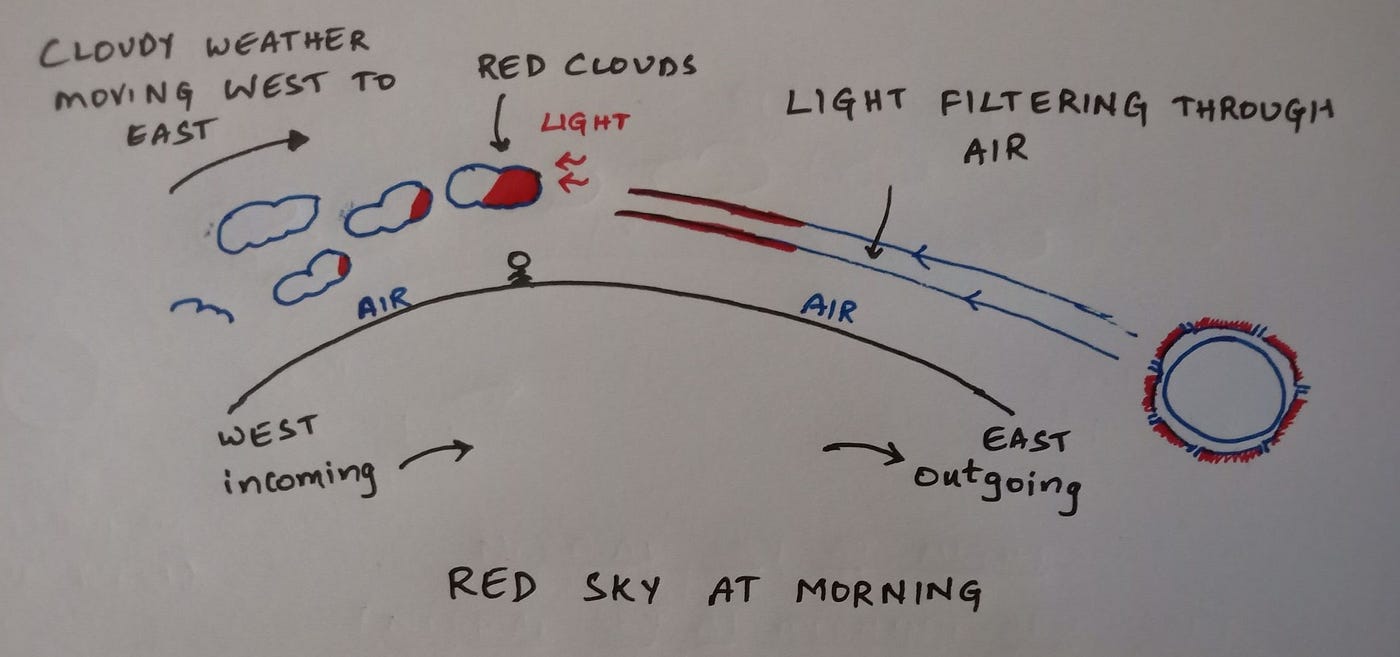 CLOUDY WEATHER
MOVING WEST TO
EAST
RED CLOUDS
LIGHT
LIGHT FILTERING THROUGH
AIR
AIR
AIR
WEST
incoming
EAST
outgoing
RED SKY AT MORNING